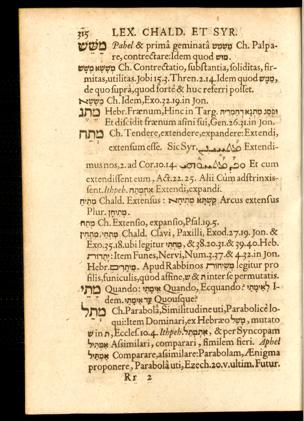 315 LEX. CHALD. ET SYR.
משש Pahel & primâ geminatâ משמש Ch. Palpa-
re, contrectare: Idem quod מוש
Ch. Contrectatio, substantia, soliditas, fir-
mitas, utilitas. Iobi 15.3. Thren. 2.14. Idem quod
de quo suprà, quod fortè & huc referri posset.
Ch. Idem, Exo. 22.19. in Jon.
מתג Hebr. Frænum, Hinc in Targ.
Et discidit frænum asini sui, Gen. 26.31. in Jon.
מתח Ch. Tendere, extendere, expandere: Extendi,
extensum esse. Sic Syr. Extendi-
mus nos, 2. ad Cor. 10.14. Et cum
extendissent eum, Act. 22.25. Alii Cùm adstrinxis-
sent. Ithpeh. Extendi, expandi.
מתיח Chald. Extensus: Arcus extensus
Plur. מתיחן
מתח Ch. Extensio, expansio, Psal. 19.5.
Chald. Clavi, Paxilli, Exod. 27.19. Jon. &
Exo. 35.18. ubi legitur & 38.20.31. & 39.40. Heb.
יתדות: Item Funes, Nervi, Num. 3.27. & 4.32. in Jon.
Hebr. Apud Rabbinos legitur pro
filis, funiculis, quod affine, ש & ת inter se permutatis.
מתי Quando: אימתי Quando, Ecquando? אימתי I-
dem. עד אימתי Quousque?
מתל Ch. Parabolâ, Similitudine uti, Parabolicè lo-
qui: Item Dominari, ex Hebræo משל, mutato
ש in ת, Eccles. 10.4. Ithpeh. & per Syncopam
Assimilari, comparari, similem fieri. Aphel
Comparare, assimilare: Parabolam, Ænigma
proponere, Parabolâ uti, Ezech. 20. v. ultim. Futur.
Rr 2